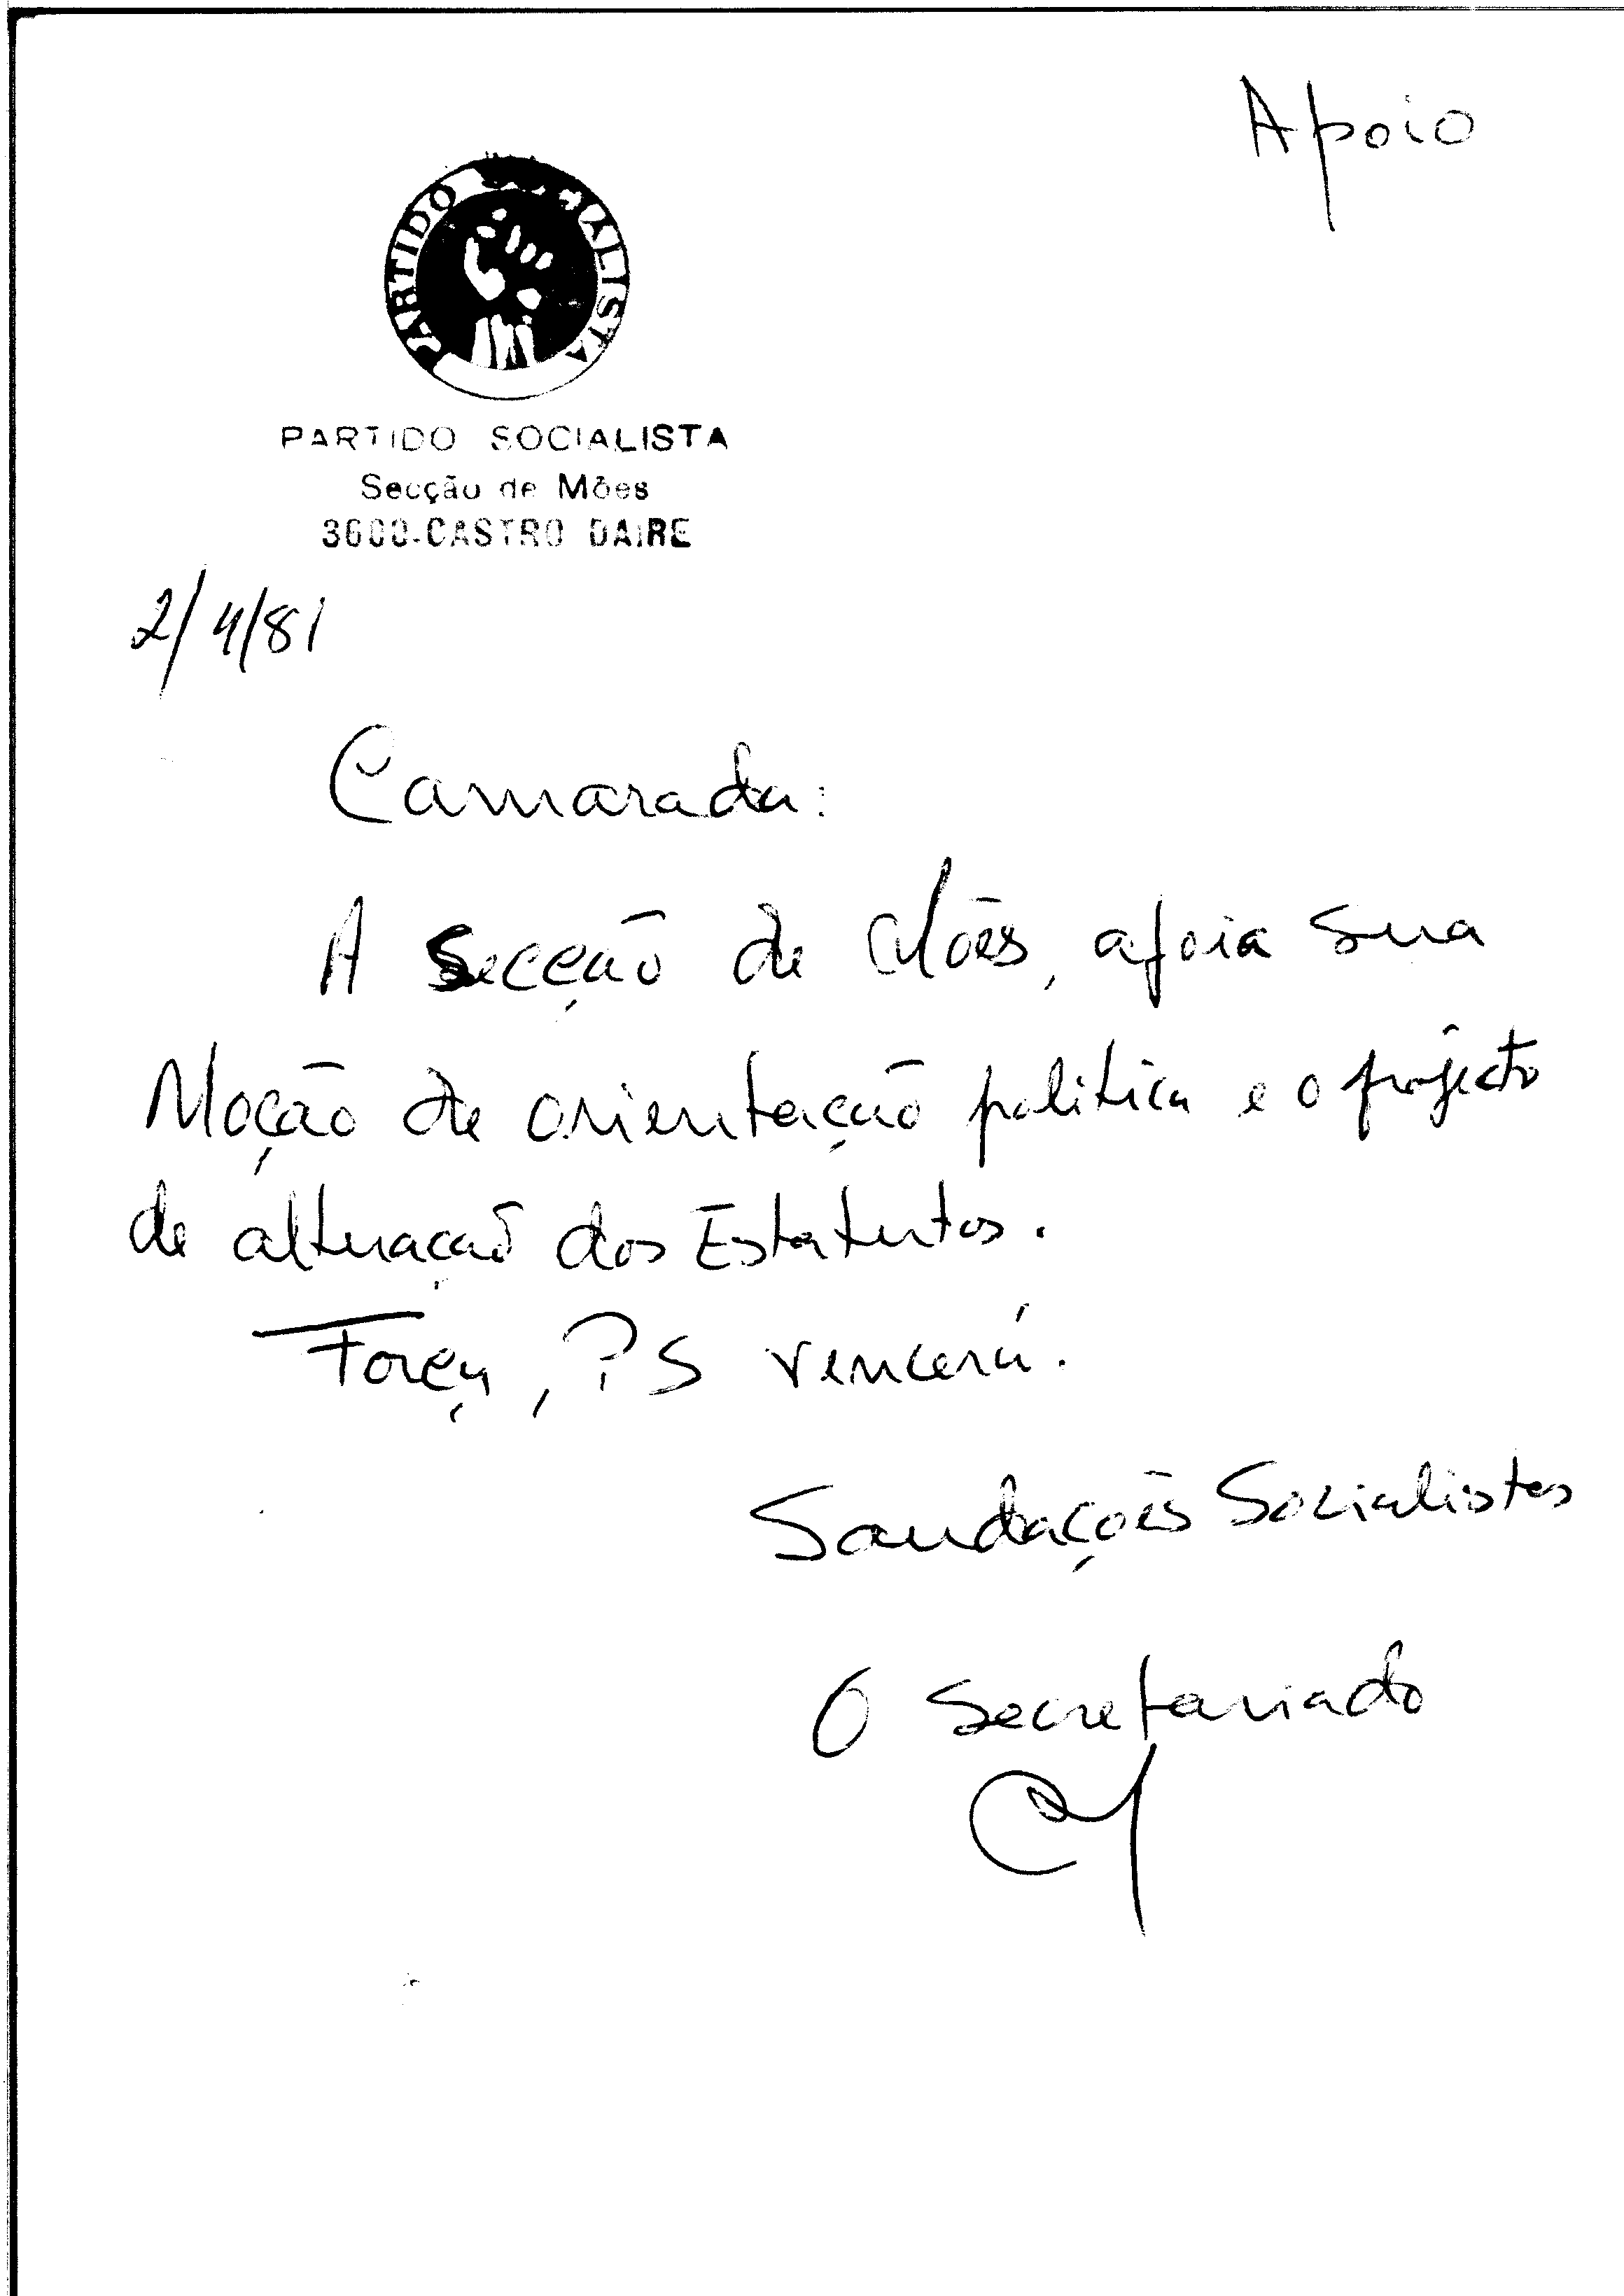 Apoio
PARTIDO SOCIALISTA
PARTIDO SOCIALISTA
Secção de Mões
3600-CASTRO DAIRE
2/4/81
Camarada:
A Secção de Mões, apoia sua
Moção de orientação politica e o projecto
de alteração dos Estatutos.
Força, PS vencerá.
Saudações Socialistas
O Secretariado